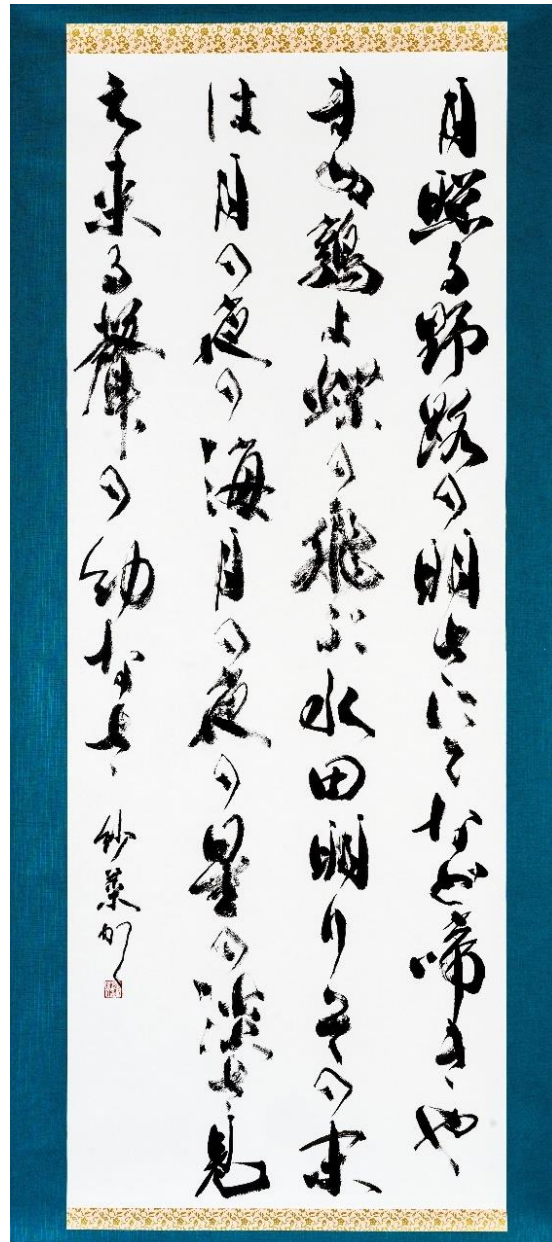 月照る野路の明さになど啼きや
まぬ鶏よ蝶の飛ぶ水田明りその末
は月の夜の海月の夜の星の淡さ見
え来る聲の幼なさ 紗葉かく